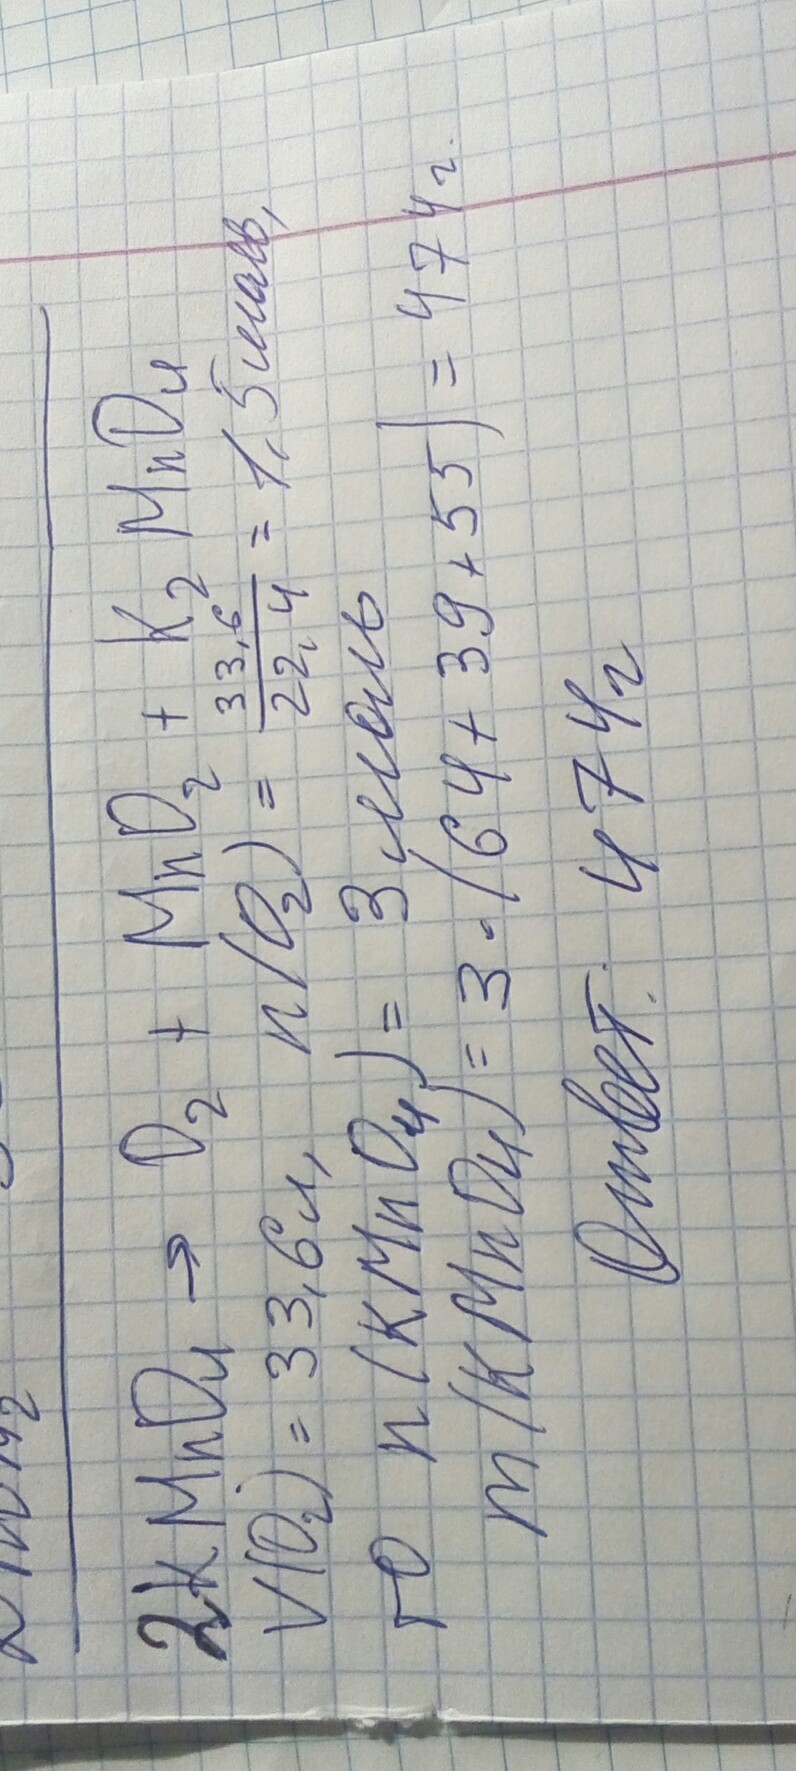 2KMnO4 → O2 + MnO2 + K2MnO4
V(O2) = 33,6л, n(O2) = 33,6/22,4 = 1,5моль,
то n(KMnO4) = 3моль
m(KMnO4) = 3·(64+39+55) = 474г.
Ответ: 474г